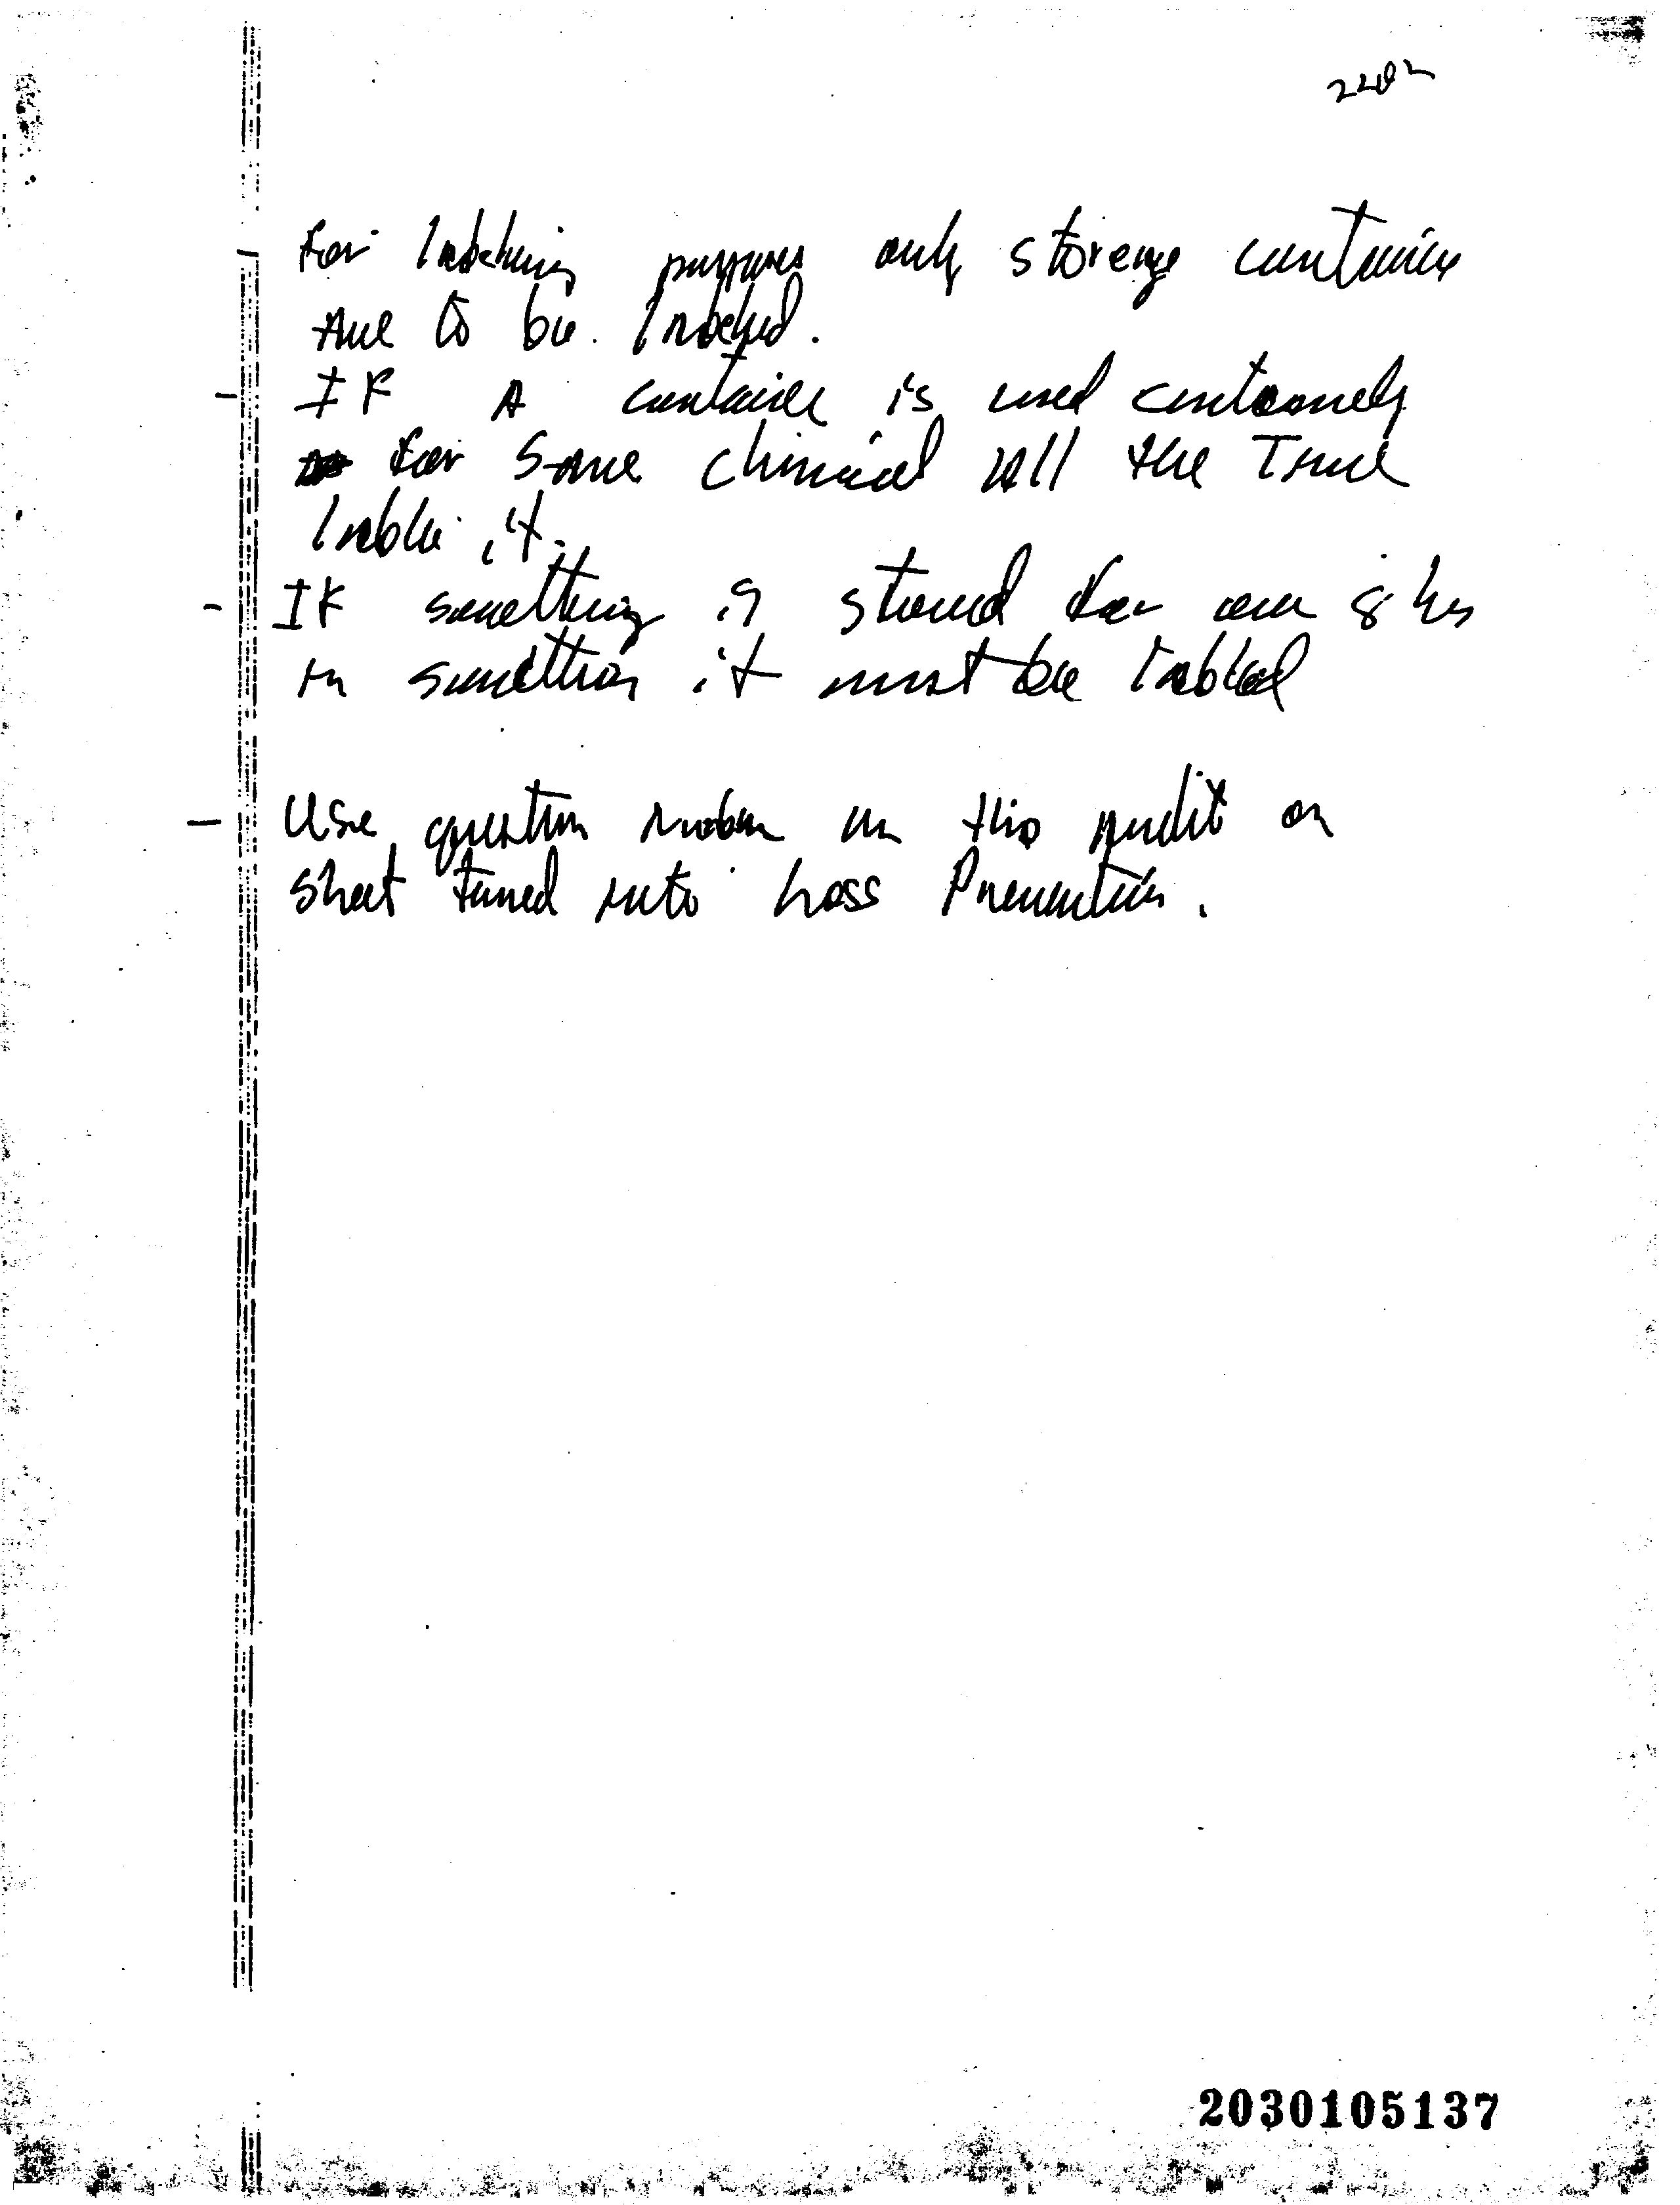 - For labeling purposes only storage container
are to be labeled.
- IF A container is used continously
for same chemical all the time
lable it.
- IF something is stored for over 8 hrs
in something it must be labled
- Use question number on this audit on
sheet turned into Loss Prevention.
2030105137